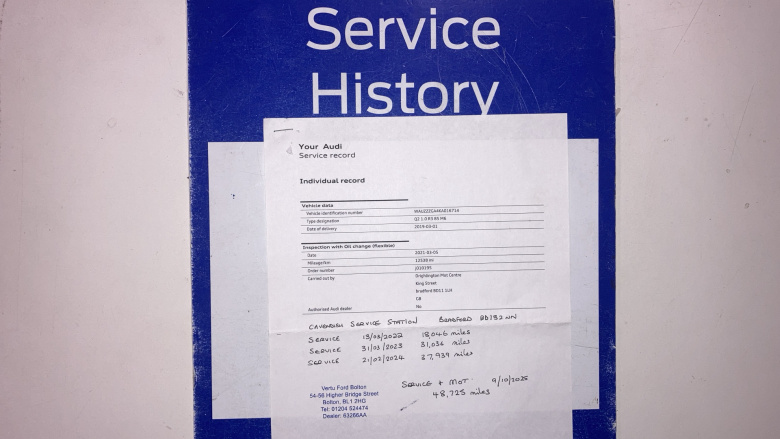 Service
History
Your Audi
Service record
Individual record
Vehicle data
Vehicle identification number
Type designation Q2 1.0 R3 85 M6
Date of delivery 2019-03-01
Inspection with Oil change (flexible)
Date 2021-03-05
Mileage/km
Order number
Carried out by Drighlington Mot Centre
King Street
Bradford BD11 1UX
GB
Authorised Audi dealer No
CAVENDISH SERVICE STATION BRADFORD
SERVICE 13/03/2022 18,046 miles
SERVICE 31/03/2023 31,036 miles
SERVICE 21/03/2024 37,939 miles
SERVICE + MOT 9/10/2025
48,725 miles
Vertu Ford Bolton
54-56 Higher Bridge Street
Bolton, BL1 2HG
Tel: 01204 524474
Dealer: 63266AA